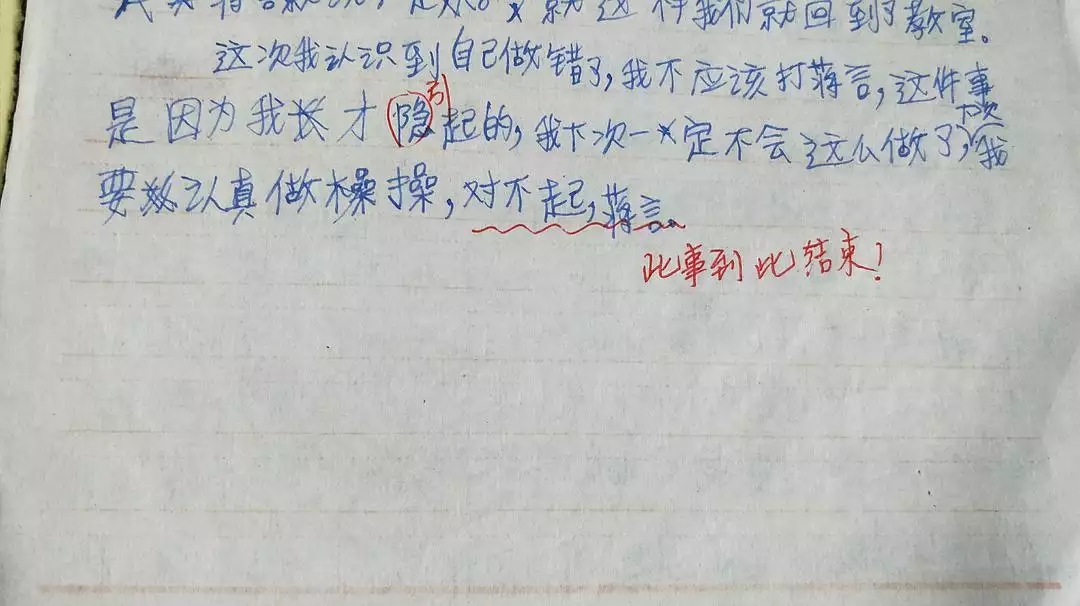 就这样我们就回到了教室。
这次我认识到自己做错了,我不应该打蒋言,这件事
是因为我才隐起的,我下次一定不会这么做了,下次我
引
要认真做操,对不起,蒋言。
此事到此结束!